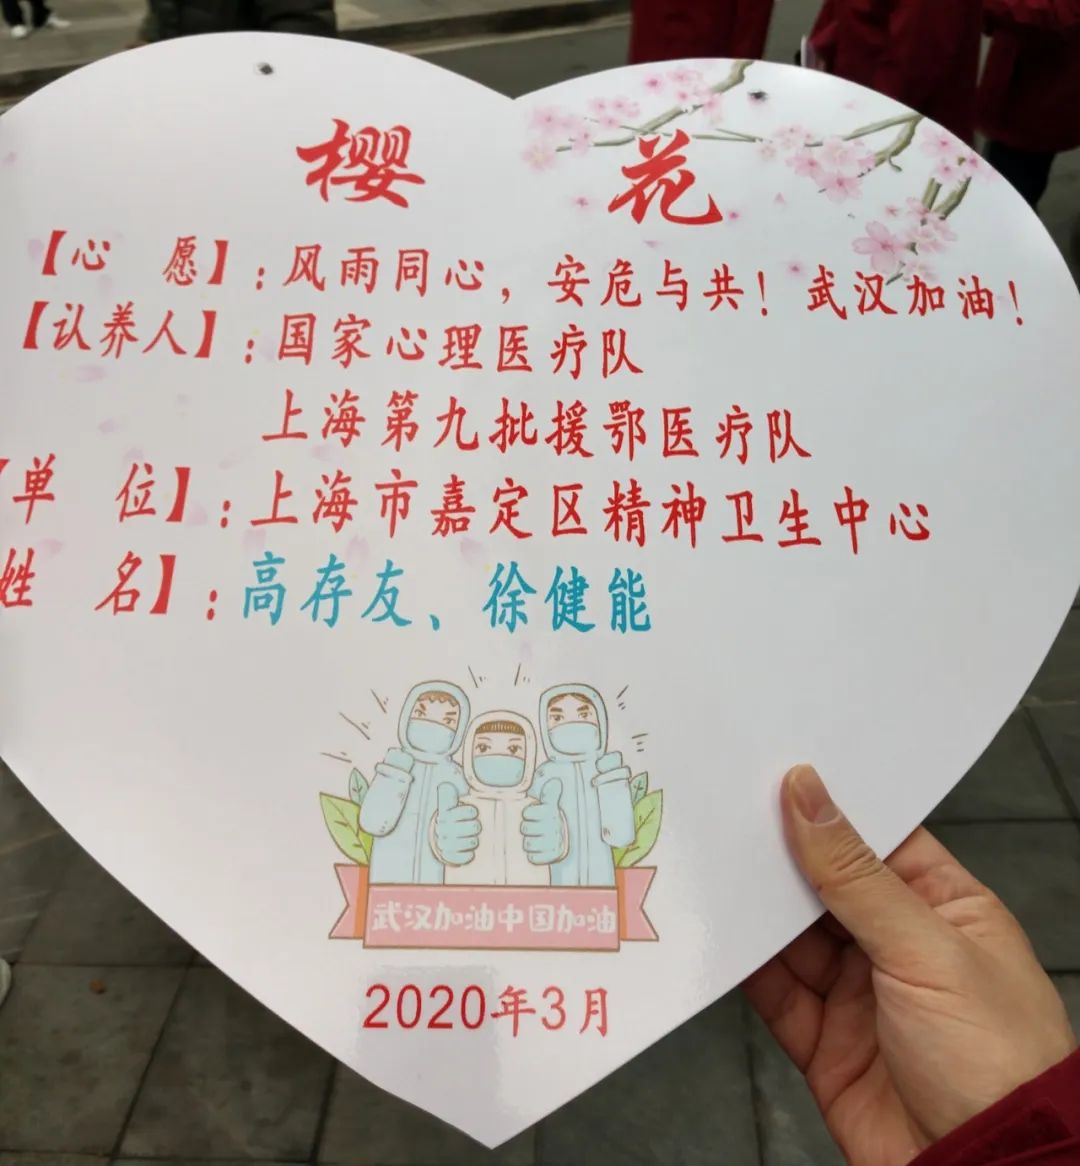 樱 花
【心 愿】：风雨同心，安危与共！武汉加油！
【认养人】：国家心理医疗队
上海第九批援鄂医疗队
【单 位】：上海市嘉定区精神卫生中心
姓 名】：高存友、徐健能
武汉加油中国加油
2020年3月